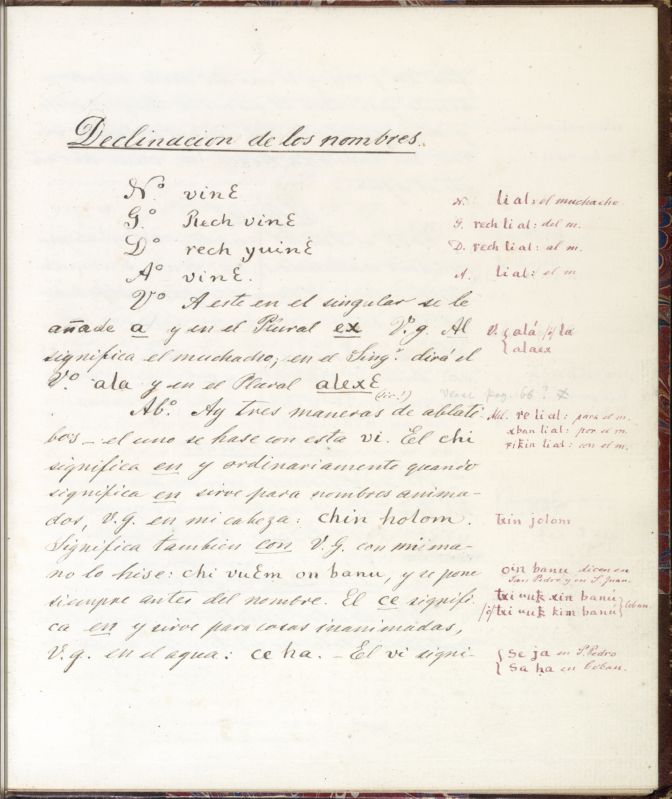 Declinacion de los nombres.
N.º vinƐ
G.º Rech vinƐ
D.º rech yuinƐ
A.º vinƐ.
V.º A este en el singular se le
añade a y en el Plural ex V.g. Al
significa el muchacho, en el Sing.r dirá el
V.º ala y en el Plural alexƐ
(sic!)
Ab.º Ay tres maneras de ablati-
bos — el uno se hase con esta vi. El chi
significa en y ordinariamente quando
significa en sirve para nombres anima-
dos, V.G. en mi cabeza: chin holom.
Significa tambien con V.G. con mi ma-
no lo hise: chi vuƐm on banu, y se pone
siempre antes del nombre. El ce signifi-
ca en y sirve para cosas inanimadas,
V.g. en el agua: ce ha. — El vi signi-
N. li al: el muchacho
G. rech li al: del m.
D. rech li al: al m.
A. li al: el m
V. { alá la
{ alaex
vease pag. 66?
Abl. re li al: para el m.
xban li al: por el m.
rikin li al: con el m.
txin jolom
oin banu dicen en
San Pedro y en S. Juan.
txi vuk xin banú } Coban.
txi vuk kim banú
{ se ja en S. Pedro
{ sa ha en Coban.